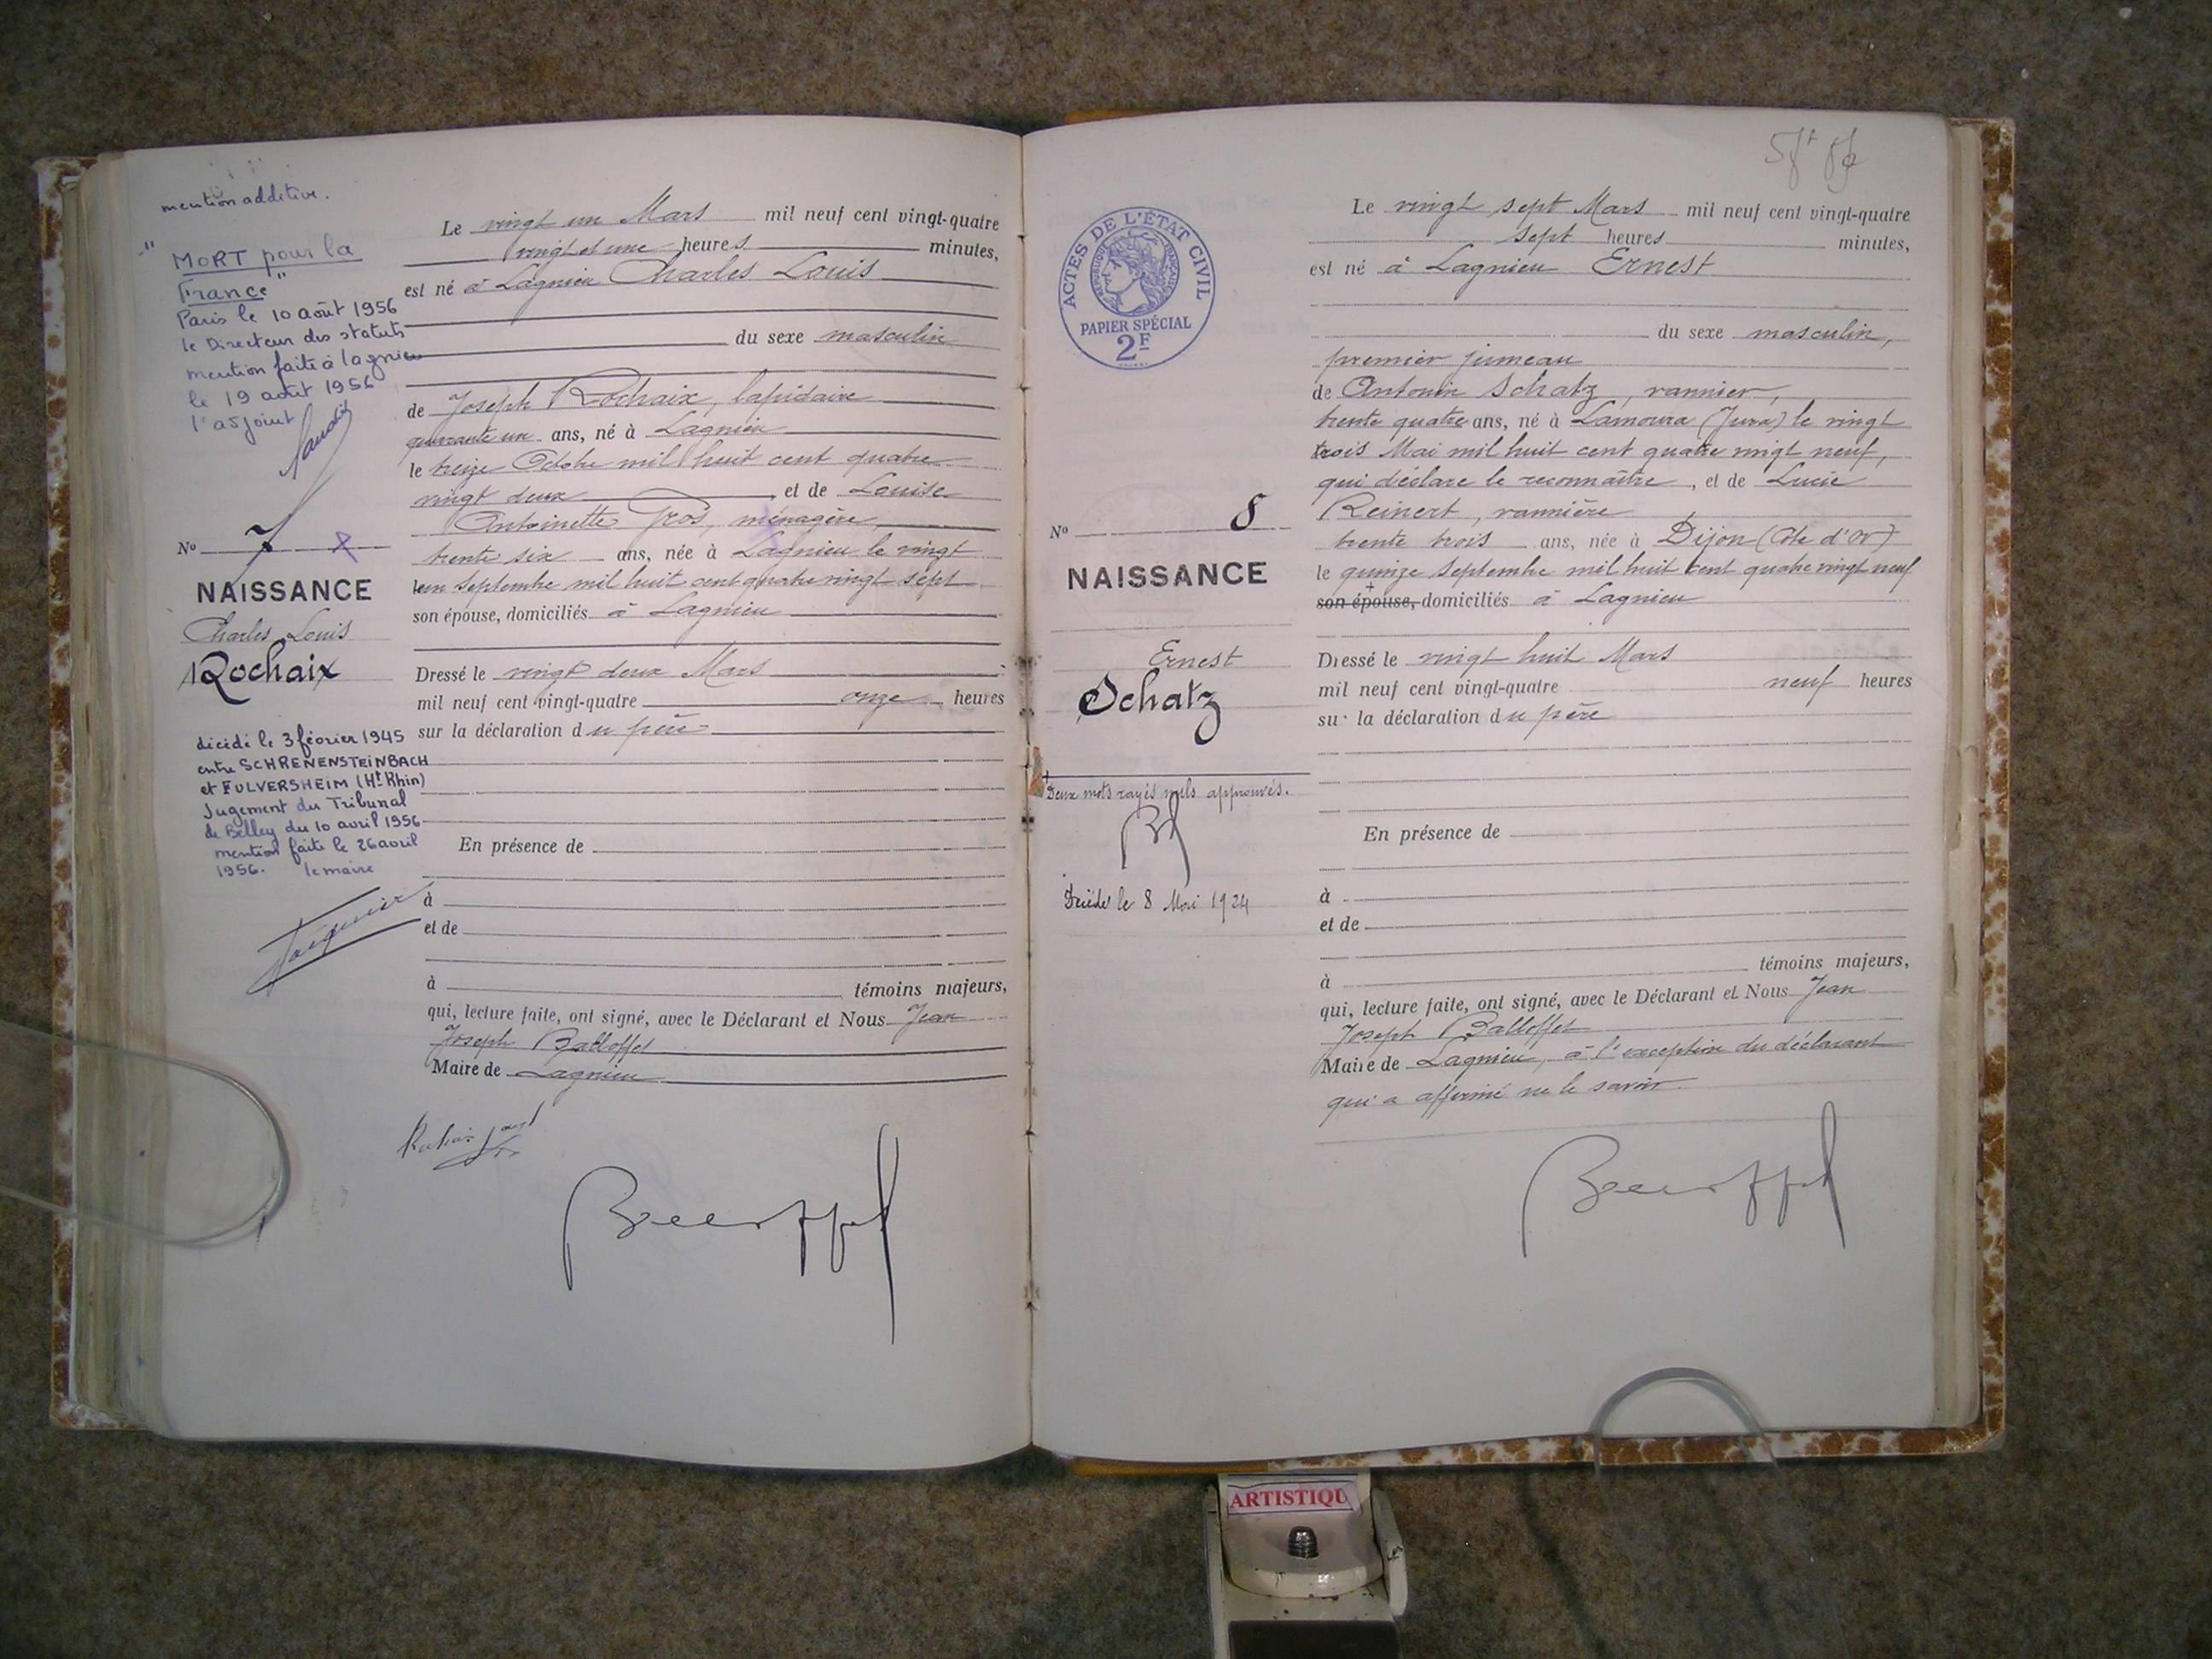 mention additive.
"MORT pour la
France"
Paris le 10 août 1956
le Directeur des statuts
mention faite à lagnieu
le 19 août 1956
l'adjoint
No 7
NAISSANCE
Charles Louis
Rochaix
décédé le 3 février 1945
entre SCHRENENSTEINBACH
et FULVERSHEIM (Ht Rhin)
Jugement du Tribunal
de Belley du 10 avril 1956
mention faite le 26 avril
1956. le maire
Le vingt un Mars mil neuf cent vingt-quatre
vingt et une heures minutes,
est né à Lagnieu Charles Louis
du sexe masculin
de Joseph Rochaix, lapidaire
quarante un ans, né à Lagnieu
le treize Octobre mil huit cent quatre
vingt deux et de Louise
Antoinette Gros, ménagère
trente six ans, née à Lagnieu le vingt
un Septembre mil huit cent quatre vingt sept
son épouse, domiciliés à Lagnieu
Dressé le vingt deux Mars
mil neuf cent vingt-quatre onze heures
sur la déclaration du père
En présence de
à
et de
à témoins majeurs,
qui, lecture faite, ont signé, avec le Déclarant et Nous Jean
Joseph Balloffet
Maire de Lagnieu
ACTES DE L'ÉTAT CIVIL
RÉPUBLIQUE FRANÇAISE
PAPIER SPÉCIAL
2F
No 8
NAISSANCE
Ernest
Schatz
Deux mots rayés nuls approuvés.
Décédé le 8 Mai 1924
Le vingt sept Mars mil neuf cent vingt-quatre
sept heures minutes,
est né à Lagnieu Ernest
du sexe masculin,
premier jumeau
de Antonin Schatz, vannier,
trente quatre ans, né à Lamoura (Jura) le vingt
trois Mai mil huit cent quatre vingt neuf,
qui déclare le reconnaître, et de Lucie
Reinert, vannière
trente trois ans, née à Dijon (Côte d'Or)
le quinze Septembre mil huit cent quatre vingt neuf
son épouse, domiciliés à Lagnieu
Dressé le vingt huit Mars
mil neuf cent vingt-quatre neuf heures
sur la déclaration du père
En présence de
à
et de
à témoins majeurs,
qui, lecture faite, ont signé, avec le Déclarant et Nous Jean
Joseph Balloffet
Maire de Lagnieu, à l'exception du déclarant
qui a affirmé ne le savoir
ARTISTIQU